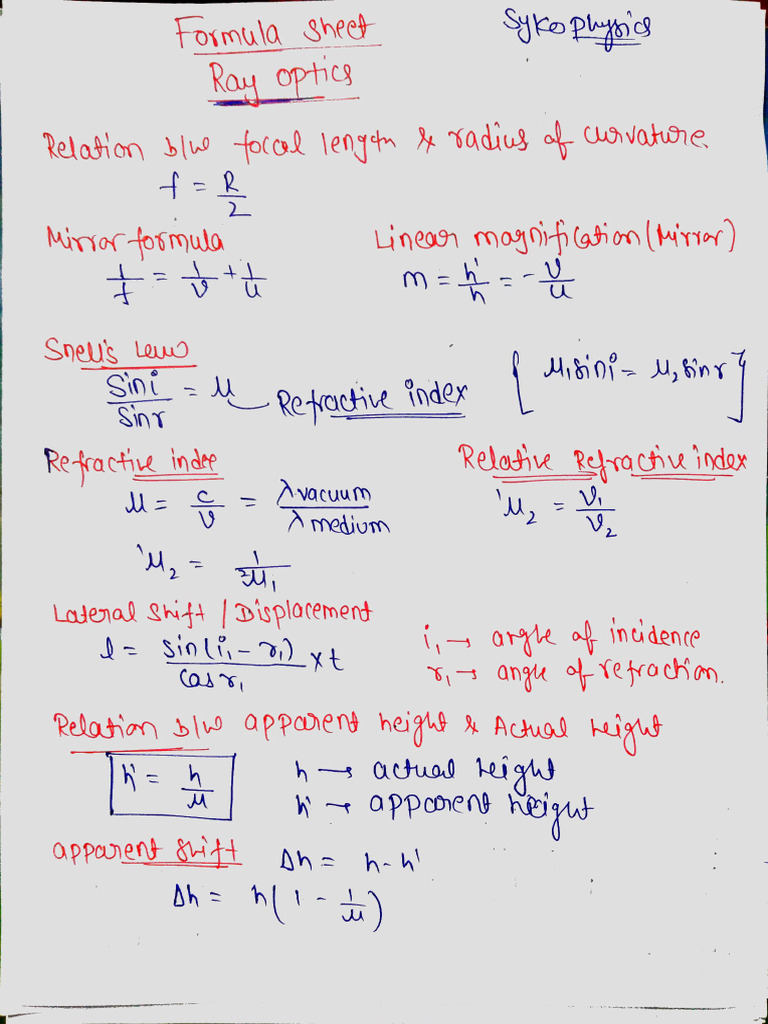 Formula sheet
Sykophysics
Ray optics
Relation b/w focal length & radius of curvature.
f = R/2
Mirror formula
Linear magnification (Mirror)
1/f = 1/v + 1/u
m = h'/h = - v/u
Snell's Law
Sin i / Sin r = μ Refractive index
[ μ₁ sin i = μ₂ sin r ]
Refractive index
Relative Refractive index
μ = c/v = λ vacuum / λ medium
¹μ₂ = v₁/v₂
¹μ₂ = 1/²μ₁
Lateral Shift / Displacement
l = sin(i₁ - r₁) / cos r₁ × t
i₁ → angle of incidence
r₁ → angle of refraction.
Relation b/w apparent height & Actual height
h' = h/μ
h → actual height
h' → apparent height
apparent shift
Δh = h - h'
Δh = h(1 - 1/μ)